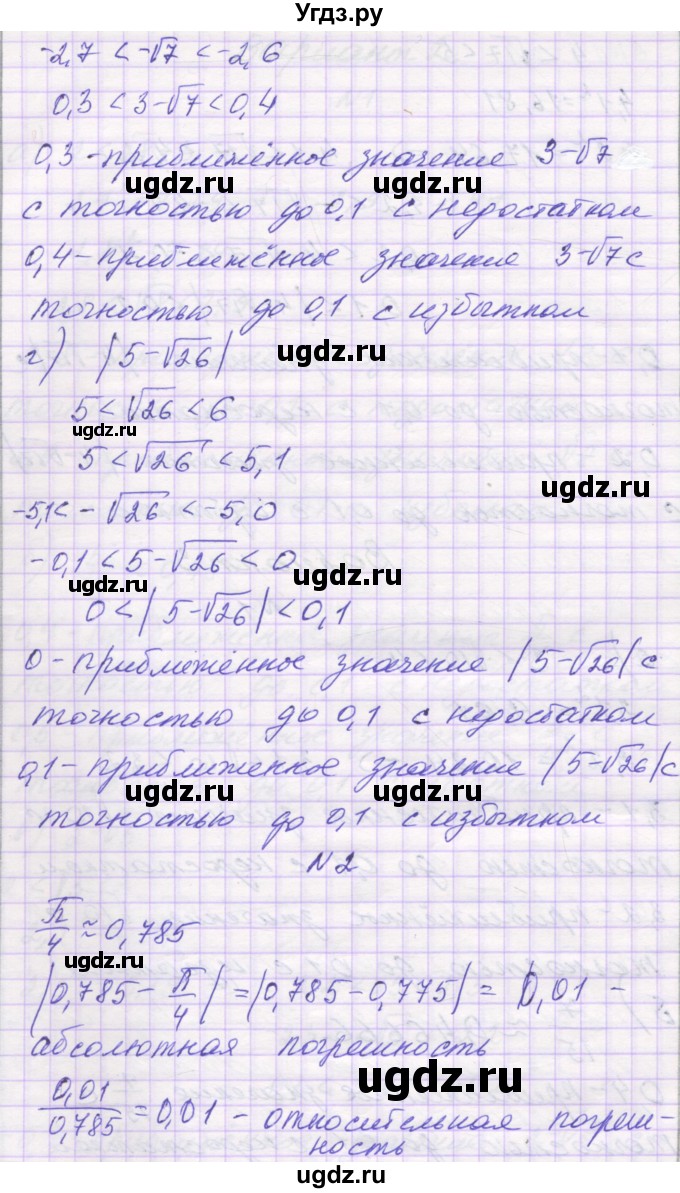 Угдз.ру
-2,7 < -√7 < -2,6
0,3 < 3-√7 < 0,4
0,3 - приближённое значение 3-√7
ugdz.ru ugdz.ru
с точностью до 0,1 с недостатком
0,4 - приближённое значение 3-√7 с
точностью до 0,1 с избытком
ugdz.ru
г) |5-√26|
5 < √26 < 6
ugdz.ru
5 < √26 < 5,1
ugdz.ru
-5,1 < -√26 < -5,0
-0,1 < 5-√26 < 0
ugdz.ru ugdz.ru
0 < |5-√26| < 0,1
0 - приближённое значение |5-√26| с
ugdz.ru ugdz.ru
точностью до 0,1 с недостатком
0,1 - приближенное значение |5-√26| с
ugdz.ru ugdz.ru
точностью до 0,1 с избытком
N2
π/4 ≈ 0,785
ugdz.ru
|0,785 - π/4| = |0,785 - 0,775| = 0,01 -
ugdz.ru
абсолютная погрешность
0,01/0,785 = 0,01 - относительная погреш-
ugdz.ru
ность
ugdz.ru